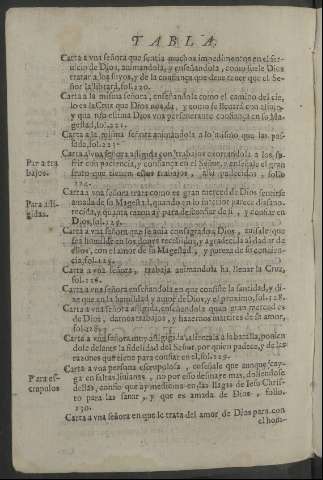 TABLA.
Carta a vna señora que sentia muchos impedimentos en el ser-
uicio de Dios, animandola, y enseñandola, como suele Dios
tratar a los suyos, y de la confiança que deue tener que el Se-
ñor la librarà, fol. 220.
Carta a la misma señora, enseñandola como el camino del cie-
lo es la Cruz que Dios nos da, y como se lleuarà con aliuio,
y que no estima Dios vna perseuerante confiança en su Ma-
gestad, fol. 221.
Carta a la misma señora animandola a lo mismo que las pas-
sada, fol. 223.
Carta a vna señora afligida con trabajos exortandola a los su-
frir con paciencia, y confiança en el Señor, y enseñale el gran
Para tra
bajos.
fruto que tienen estos trabajos, assi padecidos, folio
224.
Carta a vna señora trata como es gran merced de Dios sentirse
Para afli-
gidas.
amada de su Magestad, quando en lo interior parece disfauo-
recida, y quanta razon ay para desconfiar de si, y confiar en
Dios, fol. 225.
Carta a vna señora que se auia consagrado a Dios, auisale que
sea humilde en los dones recibidos, y agradecida al dador de
ellos, con el amor de su Magestad, y pureza de su concien-
cia, fol. 225.
Carta a vna señora, trabaja animandola ha lleuar la Cruz,
fol. 226.
Carta a vna señora enseñandola en que consiste la santidad, y di-
ze que en la humildad y amor de Dios, y el proximo, fol. 228.
Carta a vna señora afligida, enseñandola quan gran merced es
de Dios, darnos trabajos, y hazernos martires de su amor,
fol. 228.
Carta a vna señora muy afligida, alientala a la batalla, ponien
dole delante la fidelidad del Señor, por quien padece, y de las
razones que tiene para confiar en el, fol. 229.
Carta a vna persona escrupulosa, enseñale que aunque cay-
Para es-
crupulos
ga en faltas liuianas, no por esso desmaye mas, doliendose
dellas, confie que ay medicina en las llagas de Iesu Chris-
to para las sanar, y que es amada de Dios, folio
230.
Carta a vna señora en que le trata del amor de Dios para con
el hom-